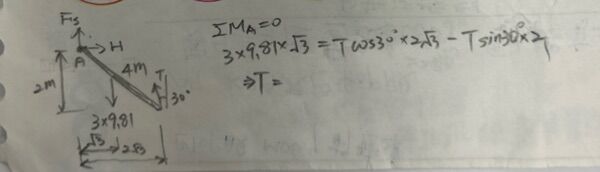 Fs
H
A
2m
4m
T
30°
3×9.81
√3
2√3
ΣM_A=0
3×9.81×√3 = T cos30°×2√3 - T sin30°×2
⇒T =